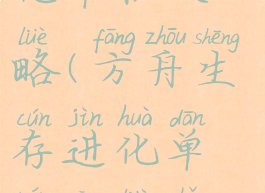 lüè fāng zhōu shēng
略(方舟生
cún jìn huà dān
存进化单